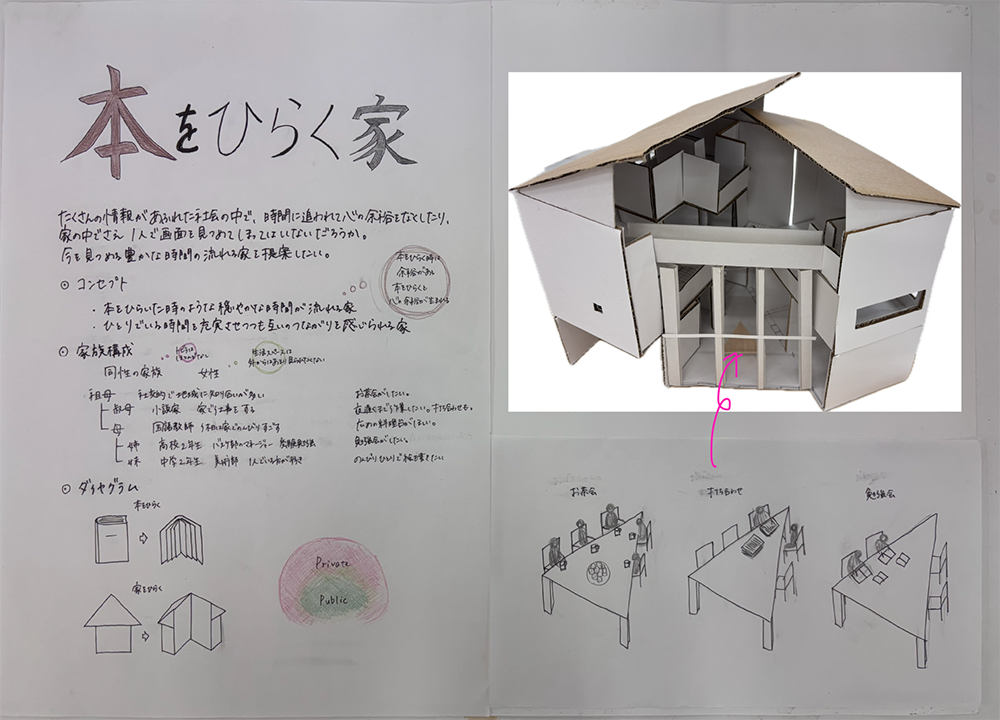 本をひらく家
たくさんの情報があふれた社会の中で、時間に追われて心の余裕をなくしたり、
家の中でさえ1人で画面を見つめてしまってはいないだろうか。
今を見つめる豊かな時間の流れる家を提案したい。
本をひらく時は
余裕がある
本をひらくと
心の余裕が生まれる
⊙ コンセプト
・本をひらいた時のような穏やかな時間が流れる家
・ひとりでいる時間を充実させつつも互いのつながりを感じられる家
⊙ 家族構成
同性の家族 女性
生活スペースは
祖母 社交的で地域に知り合いが多い お茶会がしたい。
叔母 小説家 家で仕事をする
母 国語教師
ための料理日がほしい。
姉 高校2年生 バスケ部のマネージャー 勉強会がしたい。
妹 中学2年生 美術部 1人でいるのが好き のんびりひとりで絵を書きたい
⊙ ダイヤグラム
本をひらく
家をひらく
Private
Public
お茶会
打ち合わせ
勉強会